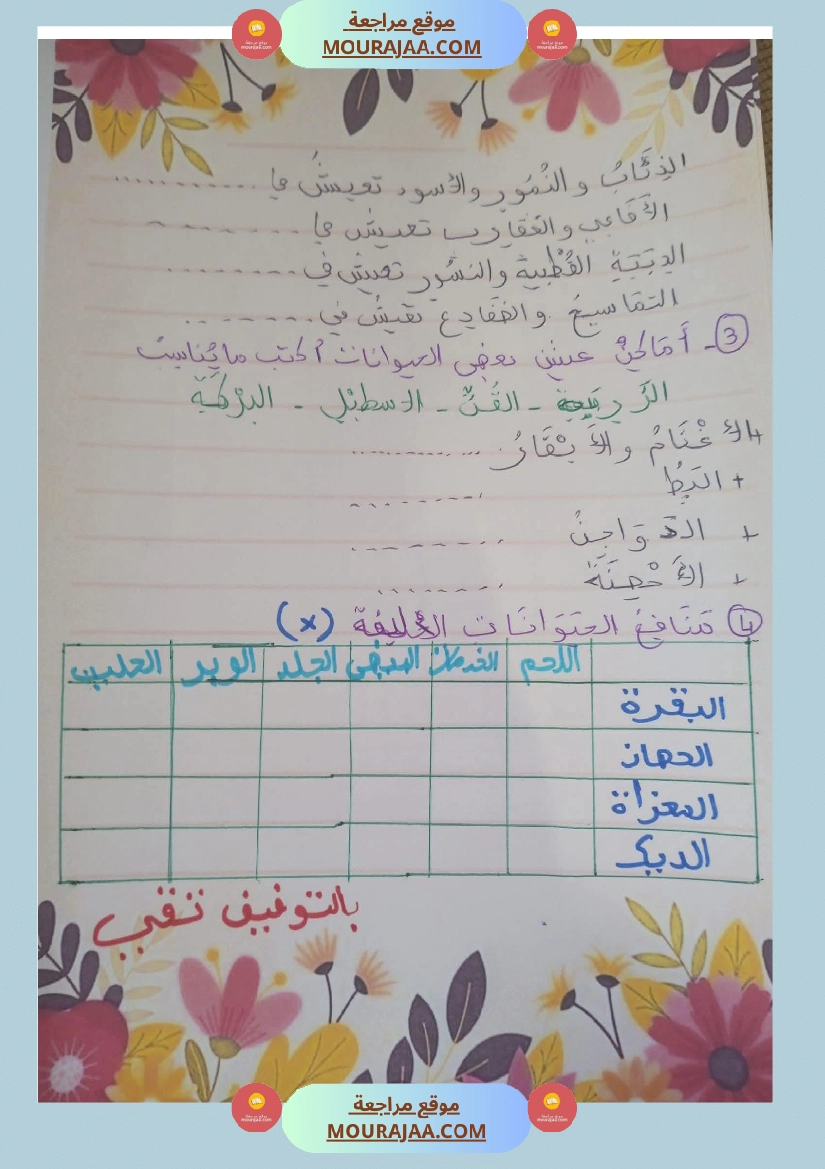 موقع مراجعة
MOURAJAA.COM
الذِئَابُ والنُمُور والأسود تعيشُ في ............
الأَفَاعي والعقارب تعيش في ............
الدِبَبَةِ القُطْبية والنسُور تعيش في ............
التمَاسيحُ والضفَادِع تعيشُ في ............
3 - أَمَاكِنُ عيش بعض الحيوانات أكتب ما يُناسبُ
الزَّريبة - القُنّ - الاسطبْلِ - البرْكَة
+ الأغْنَامُ والأَبْقَارُ ............
+ البَطُ ............
+ الدَّوَاجِنُ ............
+ الأَحْصِنَةُ ............
4 مَنَافِعُ الحيَوَانَات الأليفة (x)
اللحم الخدمات البيض الجلد الوبر الحليب
البقرة
الحصان
المعزاة
الديك
بالتوفيق
موقع مراجعة
MOURAJAA.COM